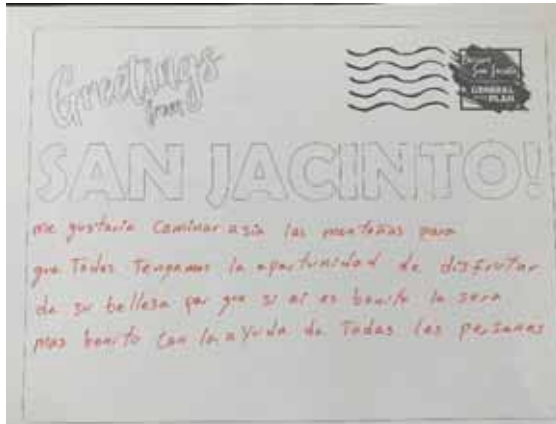 Greetings
from
SAN JACINTO!
San Jacinto
GENERAL
PLAN
me gustaria caminar asia las montañas para
que Todos Tengamos la oportunidad de disfrutar
de su bellesa por que si ai es bonito lo sera
mas bonito con la ayuda de Todas las personas